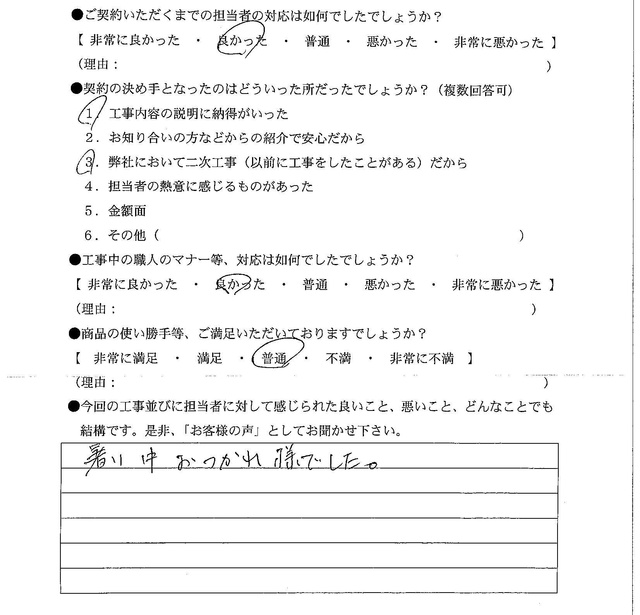 ●ご契約いただくまでの担当者の対応は如何でしたでしょうか？
【 非常に良かった ・ 良かった ・ 普通 ・ 悪かった ・ 非常に悪かった 】
（理由： ）
●契約の決め手となったのはどういった所だったでしょうか？（複数回答可）
1．工事内容の説明に納得がいった
2．お知り合いの方などからの紹介で安心だから
3．弊社において二次工事（以前に工事をしたことがある）だから
4．担当者の熱意に感じるものがあった
5．金額面
6．その他（ ）
●工事中の職人のマナー等、対応は如何でしたでしょうか？
【 非常に良かった ・ 良かった ・ 普通 ・ 悪かった ・ 非常に悪かった 】
（理由： ）
●商品の使い勝手等、ご満足いただいておりますでしょうか？
【 非常に満足 ・ 満足 ・ 普通 ・ 不満 ・ 非常に不満 】
（理由： ）
●今回の工事並びに担当者に対して感じられた良いこと、悪いこと、どんなことでも
結構です。是非、「お客様の声」としてお聞かせ下さい。
暑い中 おつかれ様でした。